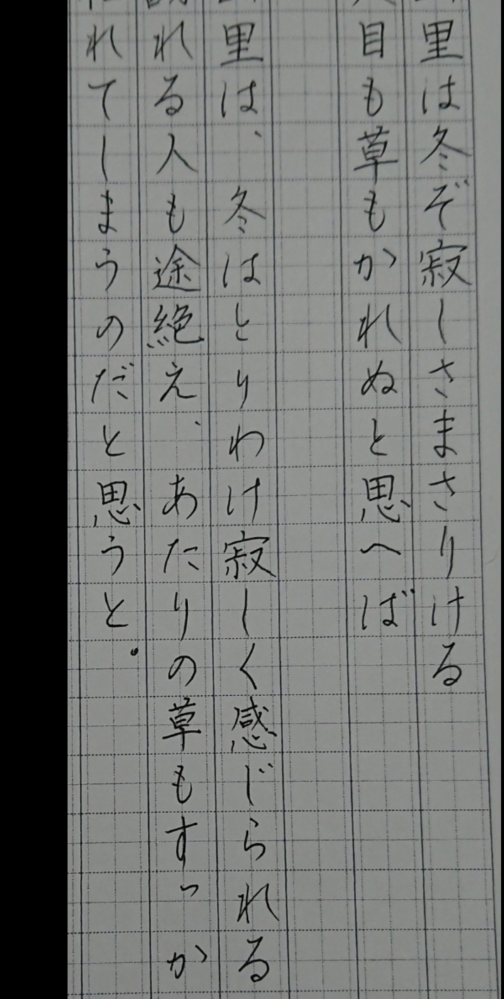 里は冬ぞ寂しさまさりける
目も草もかれぬと思へば
里は、冬はとりわけ寂しく感じられる
れる人も途絶え、あたりの草もすっか
れてしまうのだと思うと。